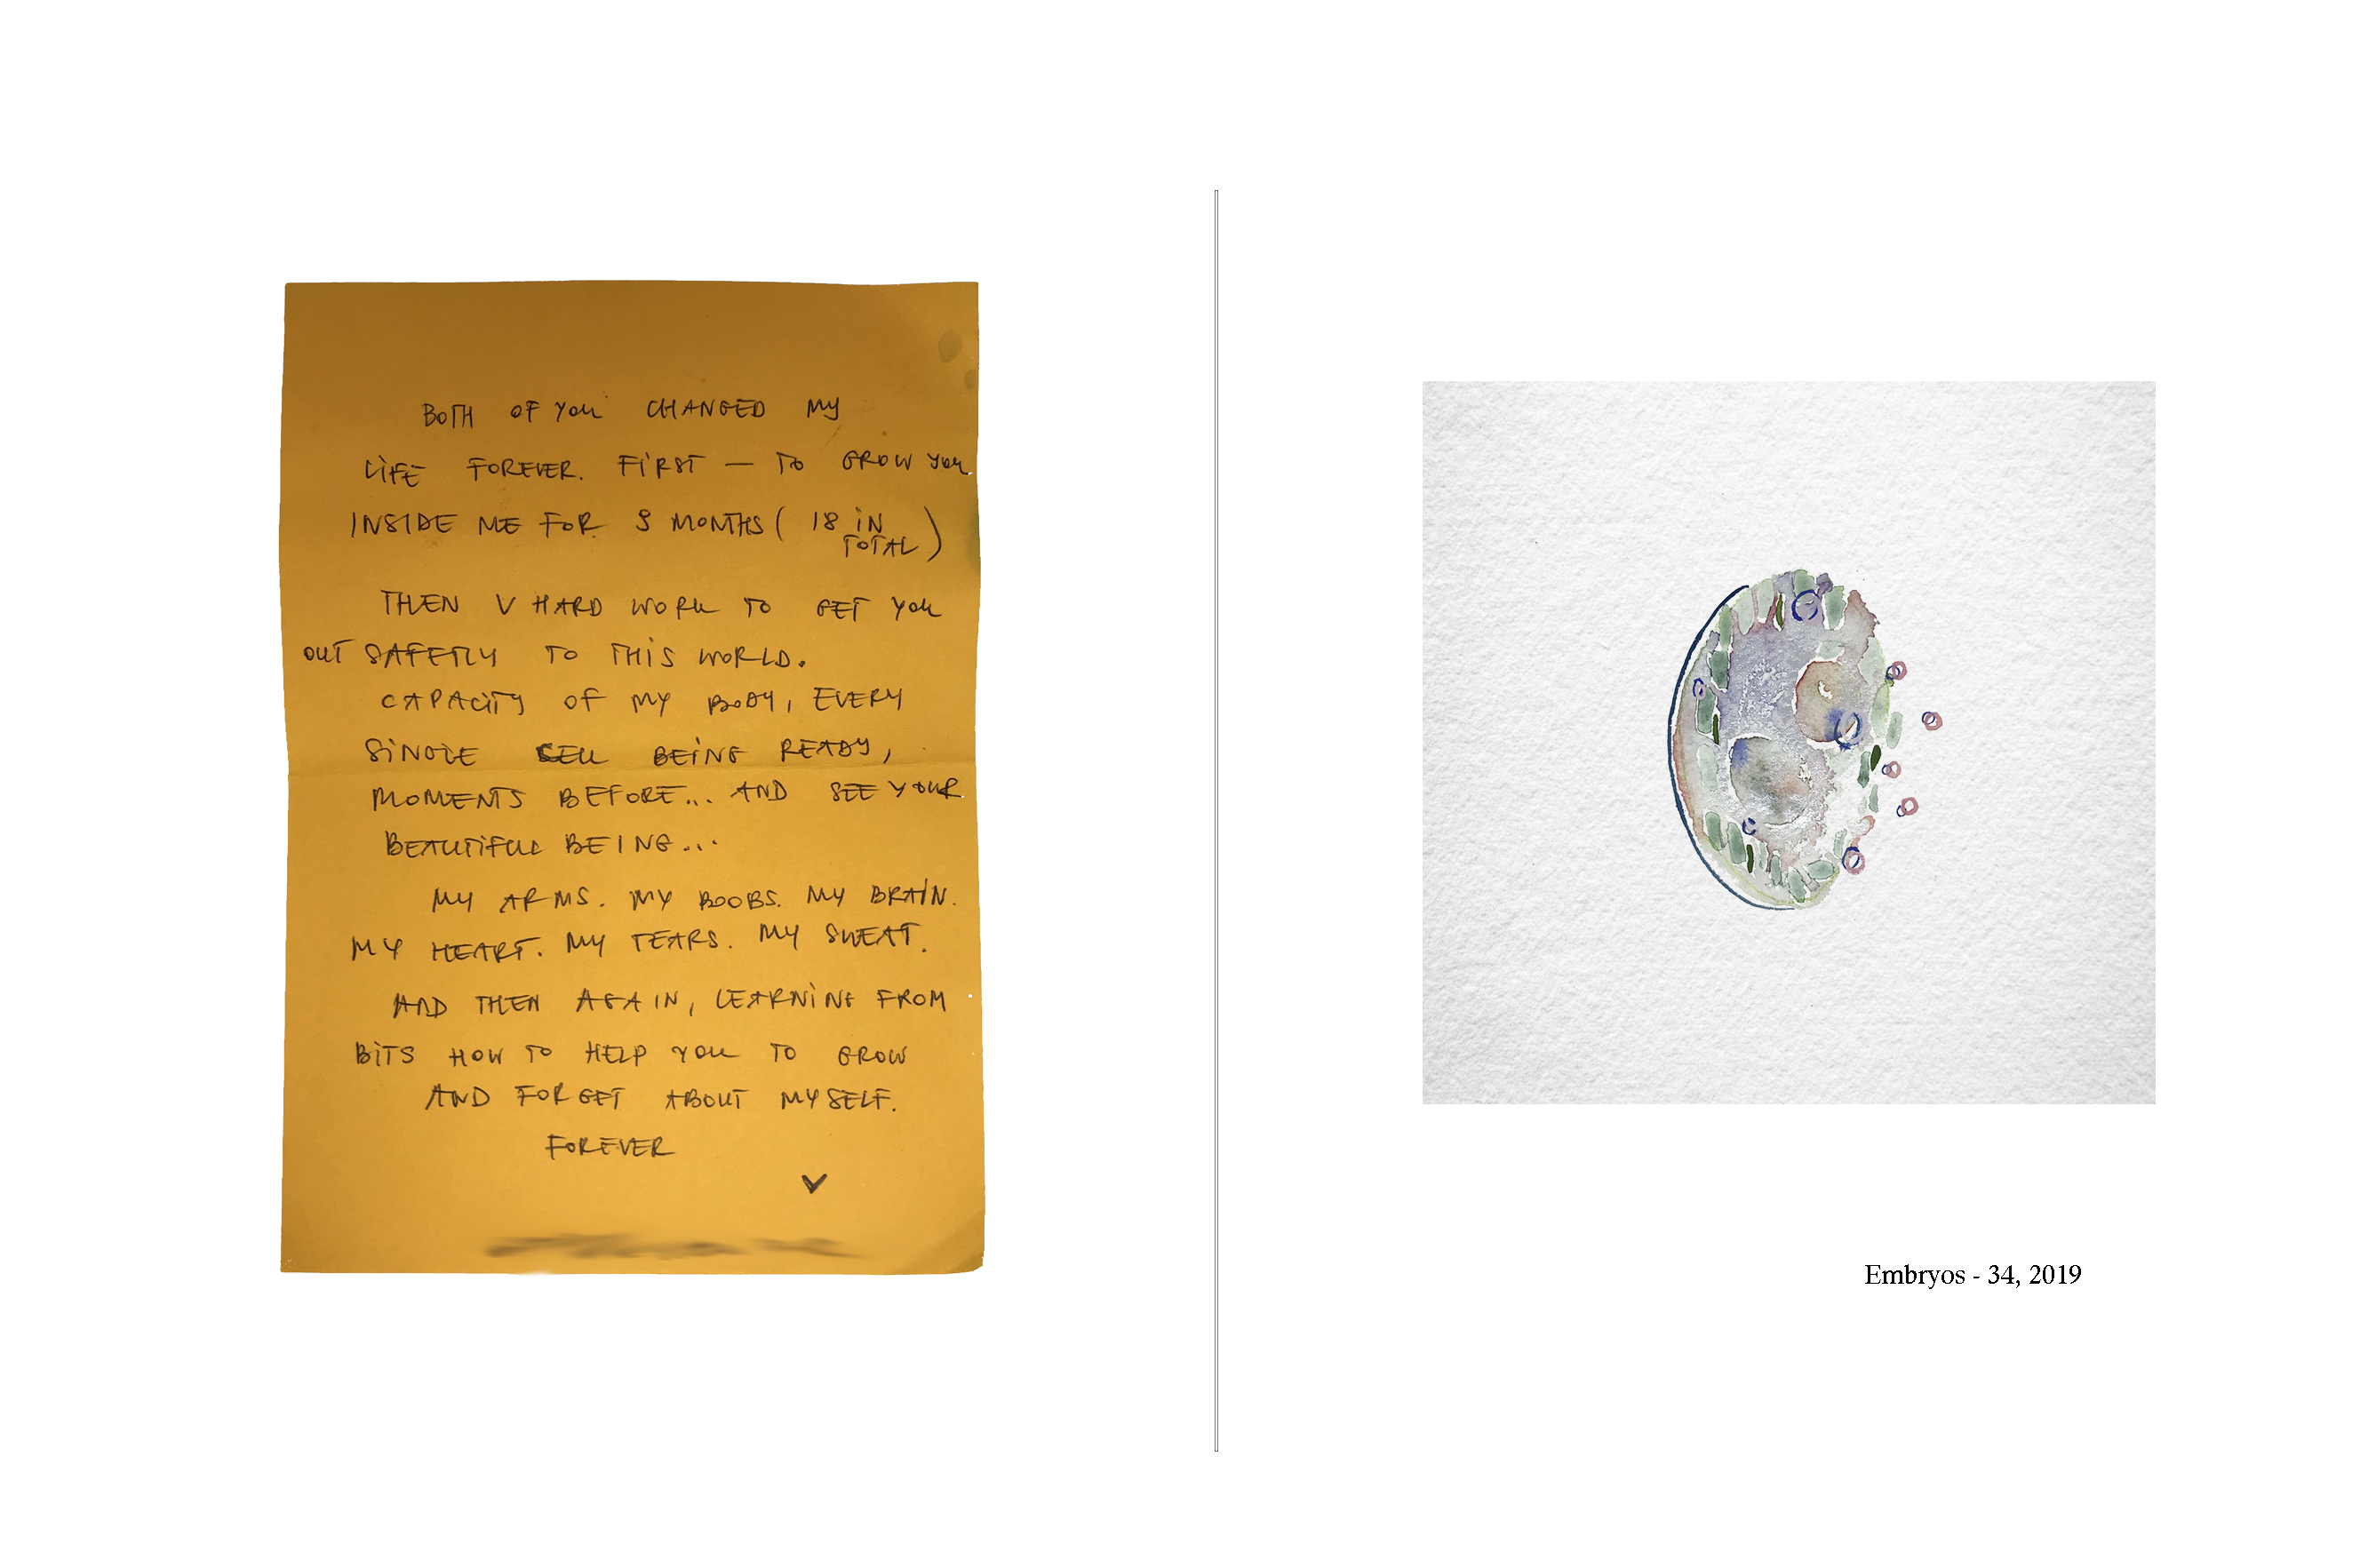 BOTH OF YOU CHANGED MY
LIFE FOREVER. FIRST — TO GROW YOU
INSIDE ME FOR 9 MONTHS ( 18 IN
TOTAL )
THEN V HARD WORK TO GET YOU
OUT SAFETLY TO THIS WORLD.
CAPACITY OF MY BODY, EVERY
SINGLE CELL BEING READY,
MOMENTS BEFORE... AND SEE YOUR
BEAUTIFUL BEING...
MY ARMS. MY BOOBS. MY BRAIN.
MY HEART. MY TEARS. MY SWEAT.
AND THEN AGAIN, LEARNING FROM
BITS HOW TO HELP YOU TO GROW
AND FORGET ABOUT MYSELF.
FOREVER
Embryos - 34, 2019